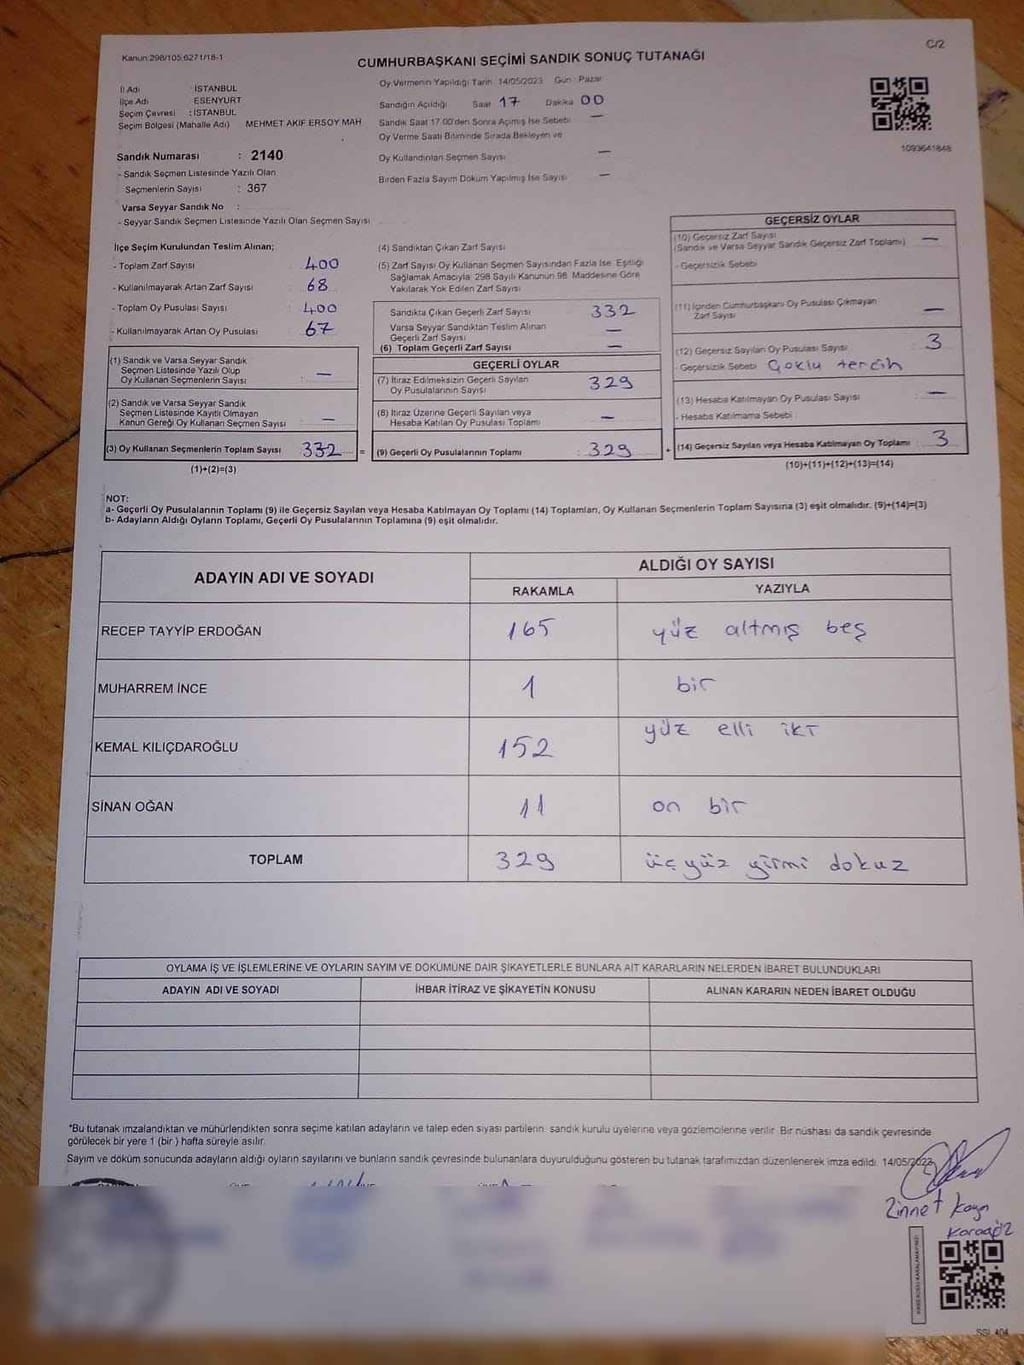 C/2
Kanun:298/105.6271/18-1
CUMHURBAŞKANI SEÇİMİ SANDIK SONUÇ TUTANAĞI
İl Adı : İSTANBUL
İlçe Adı : ESENYURT
Seçim Çevresi : İSTANBUL
Seçim Bölgesi (Mahalle Adı) MEHMET AKİF ERSOY MAH
Sandık Numarası : 2140
- Sandık Seçmen Listesinde Yazılı Olan
Seçmenlerin Sayısı : 367
Varsa Seyyar Sandık No :
- Seyyar Sandık Seçmen Listesinde Yazılı Olan Seçmen Sayısı
Oy Vermenin Yapıldığı Tarih 14/05/2023 Gün : Pazar
Sandığın Açıldığı Saat 17 Dakika 00
Sandık Saat 17.00'den Sonra Açılmış İse Sebebi —
Oy Verme Saati Bitiminde Sırada Bekleyen ve
Oy Kullandırılan Seçmen Sayısı —
Birden Fazla Sayım Döküm Yapılmış İse Sayısı —
1093641848
İlçe Seçim Kurulundan Teslim Alınan;
- Toplam Zarf Sayısı : 400
- Kullanılmayarak Artan Zarf Sayısı : 68
- Toplam Oy Pusulası Sayısı : 400
- Kullanılmayarak Artan Oy Pusulası : 67
(1) Sandık ve Varsa Seyyar Sandık
Seçmen Listesinde Yazılı Olup
Oy Kullanan Seçmenlerin Sayısı : —
(2) Sandık ve Varsa Seyyar Sandık
Seçmen Listesinde Kayıtlı Olmayan
Kanun Gereği Oy Kullanan Seçmen Sayısı : —
(3) Oy Kullanan Seçmenlerin Toplam Sayısı : 332 =
(1)+(2)=(3)
(4) Sandıktan Çıkan Zarf Sayısı
(5) Zarf Sayısı Oy Kullanan Seçmen Sayısından Fazla İse, Eşitliği
Sağlamak Amacıyla; 298 Sayılı Kanunun 98. Maddesine Göre
Yakılarak Yok Edilen Zarf Sayısı
Sandıkta Çıkan Geçerli Zarf Sayısı : 332
Varsa Seyyar Sandıktan Teslim Alınan
Geçerli Zarf Sayısı —
(6) Toplam Geçerli Zarf Sayısı : —
GEÇERLİ OYLAR
(7) İtiraz Edilmeksizin Geçerli Sayılan
Oy Pusulasının Sayısı : 329
(8) İtiraz Üzerine Geçerli Sayılan veya
Hesaba Katılan Oy Pusulası Toplamı : —
(9) Geçerli Oy Pusulalarının Toplamı : 329 +
GEÇERSİZ OYLAR
(10) Geçersiz Zarf Sayısı
(Sandık ve Varsa Seyyar Sandık Geçersiz Zarf Toplamı) —
- Geçersizlik Sebebi :
(11) İçinden Cumhurbaşkanı Oy Pusulası Çıkmayan
Zarf Sayısı —
(12) Geçersiz Sayılan Oy Pusulası Sayısı : 3
- Geçersizlik Sebebi : Çoklu tercih
(13) Hesaba Katılmayan Oy Pusulası Sayısı : —
- Hesaba Katılmama Sebebi :
(14) Geçersiz Sayılan veya Hesaba Katılmayan Oy Toplamı : 3
(10)+(11)+(12)+(13)=(14)
NOT:
a- Geçerli Oy Pusulalarının Toplamı (9) ile Geçersiz Sayılan veya Hesaba Katılmayan Oy Toplamı (14) Toplamları, Oy Kullanan Seçmenlerin Toplam Sayısına (3) eşit olmalıdır. (9)+(14)=(3)
b- Adayların Aldığı Oyların Toplamı, Geçerli Oy Pusulalarının Toplamına (9) eşit olmalıdır.
ADAYIN ADI VE SOYADI ALDIĞI OY SAYISI
RAKAMLA YAZIYLA
RECEP TAYYİP ERDOĞAN 165 yüz altmış beş
MUHARREM İNCE 1 bir
KEMAL KILIÇDAROĞLU 152 yüz elli iki
SİNAN OĞAN 11 on bir
TOPLAM 329 üç yüz yirmi dokuz
OYLAMA İŞ VE İŞLEMLERİNE VE OYLARIN SAYIM VE DÖKÜMÜNE DAİR ŞİKAYETLERLE BUNLARA AİT KARARLARIN NELERDEN İBARET BULUNDUKLARI
ADAYIN ADI VE SOYADI İHBAR İTİRAZ VE ŞİKAYETİN KONUSU ALINAN KARARIN NEDEN İBARET OLDUĞU
*Bu tutanak imzalandıktan ve mühürlendikten sonra seçime katılan adayların ve talep eden siyasi partilerin sandık kurulu üyelerine veya gözlemcilerine verilir. Bir nüshası da sandık çevresinde
görülecek bir yere 1 (bir ) hafta süreyle asılır.
Sayım ve döküm sonucunda adayların aldığı oyların sayılarını ve bunların sandık çevresinde bulunanlara duyurulduğunu gösteren bu tutanak tarafımızdan düzenlenerek imza edildi. 14/05/2023
Zinnet Kaya
Karagöz
SSI 404